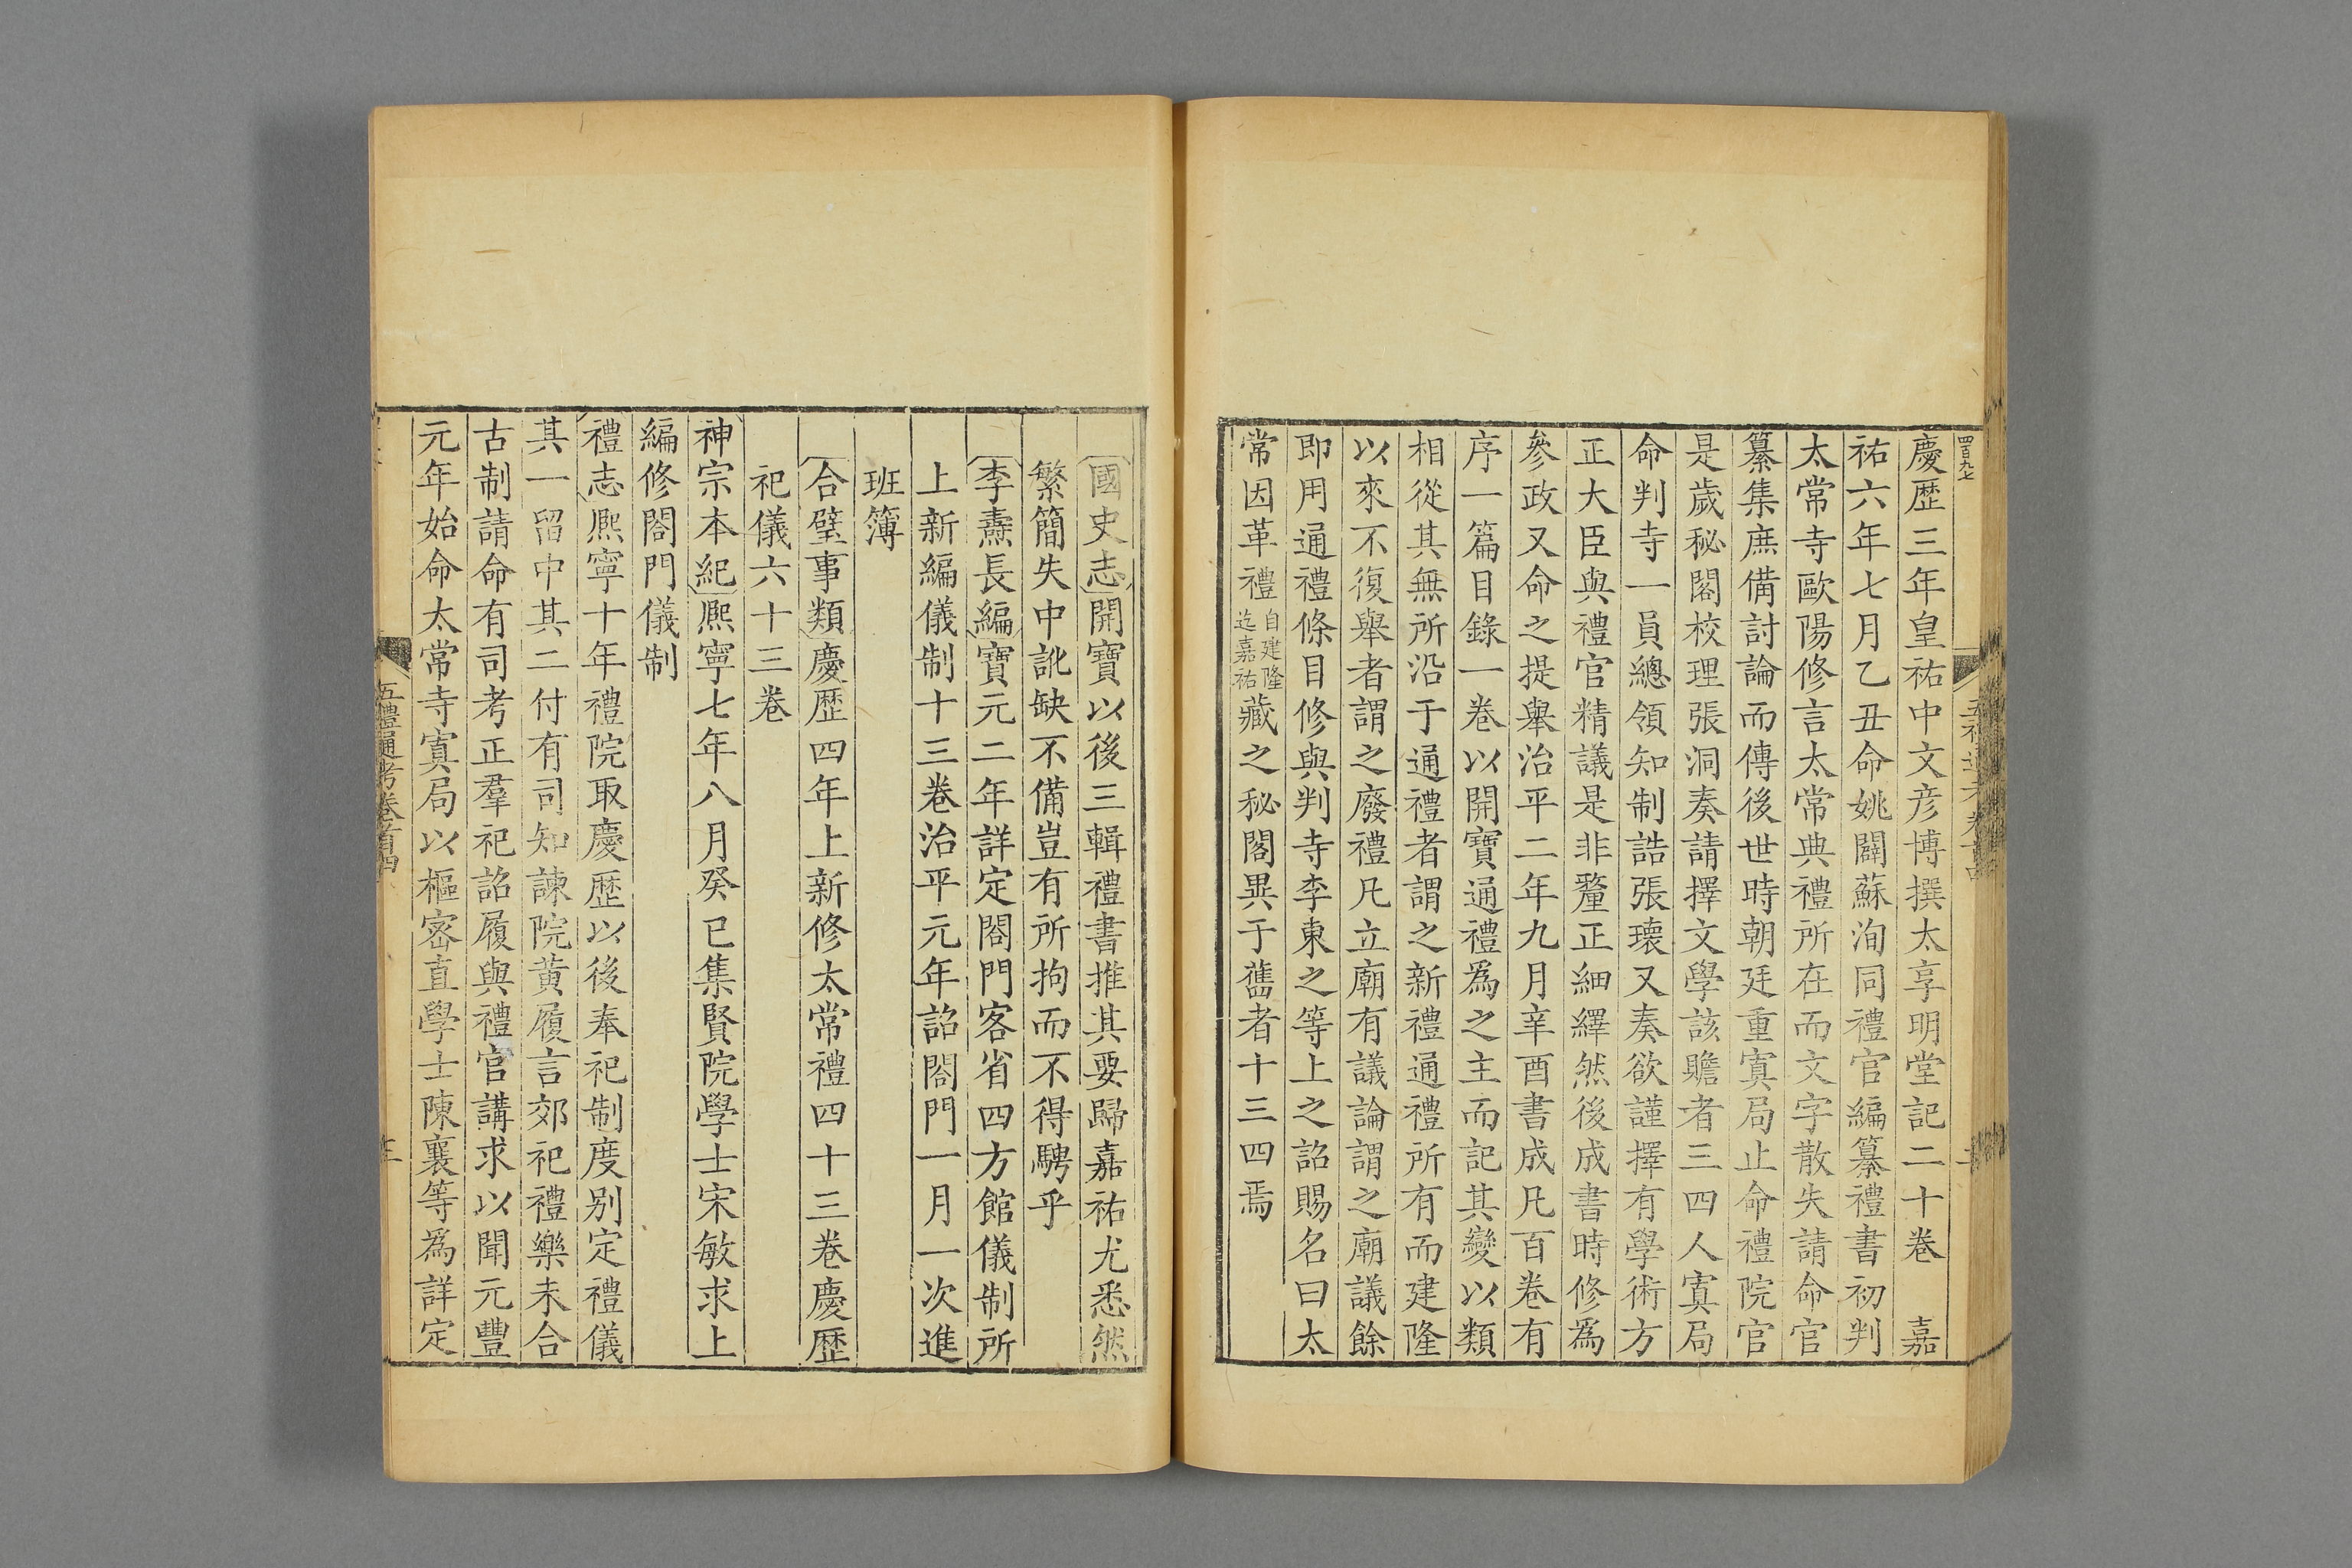 四百九七
慶歷三年皇祐中文彦博撰太享明堂記二十卷　嘉
祐六年七月乙丑命姚闢蘇洵同禮官編纂禮書初判
太常寺歐陽修言太常典禮所在而文字散失請命官
纂集庶備討論而傳後世時朝廷重寘局止命禮院官
是歲秘閣校理張洞奏請擇文學該贍者三四人寘局
命判寺一員總領知制誥張瓌又奏欲謹擇有學術方
正大臣與禮官精議是非釐正細繹然後成書時修為
參政又命之提舉治平二年九月辛酉書成凡百卷有
序一篇目錄一卷以開寶通禮爲之主而記其變以類
相從其無所沿于通禮者謂之新禮通禮所有而建隆
以來不復舉者謂之廢禮凡立廟有議論謂之廟議餘
即用通禮條目修與判寺李東之等上之詔賜名曰太
常因革禮自建隆迄嘉祐藏之秘閣異于舊者十三四焉
國史志開寶以後三輯禮書推其要歸嘉祐尤悉然
繁簡失中訛缺不備豈有所拘而不得騁乎
李燾長編寶元二年詳定閤門客省四方館儀制所
上新編儀制十三卷治平元年詔閤門一月一次進
班簿
合璧事類慶歷四年上新修太常禮四十三卷慶歷
祀儀六十三卷
神宗本紀熈寧七年八月癸巳集賢院學士宋敏求上
編修閤門儀制
禮志熈寧十年禮院取慶歷以後奉祀制度别定禮儀
其一留中其二付有司知諫院黄履言郊祀禮樂未合
古制請命有司考正羣祀詔履與禮官講求以聞元豐
元年始命太常寺寘局以樞密直學士陳襄等爲詳定
五禮通考卷首四